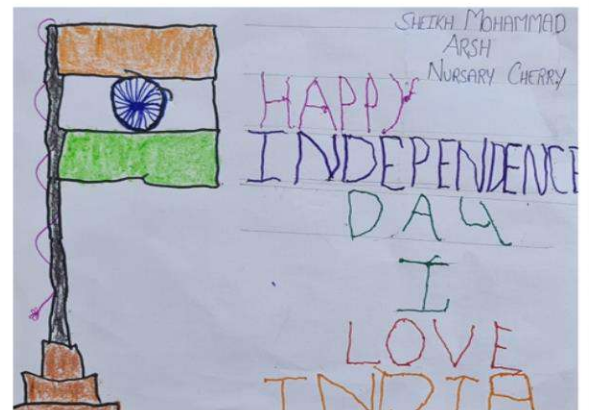 SHEIKH MOHAMMAD
ARSH
NURSARY CHERRY
HAPPY
INDEPENDENCE
DAY
I
LOVE
INDIA